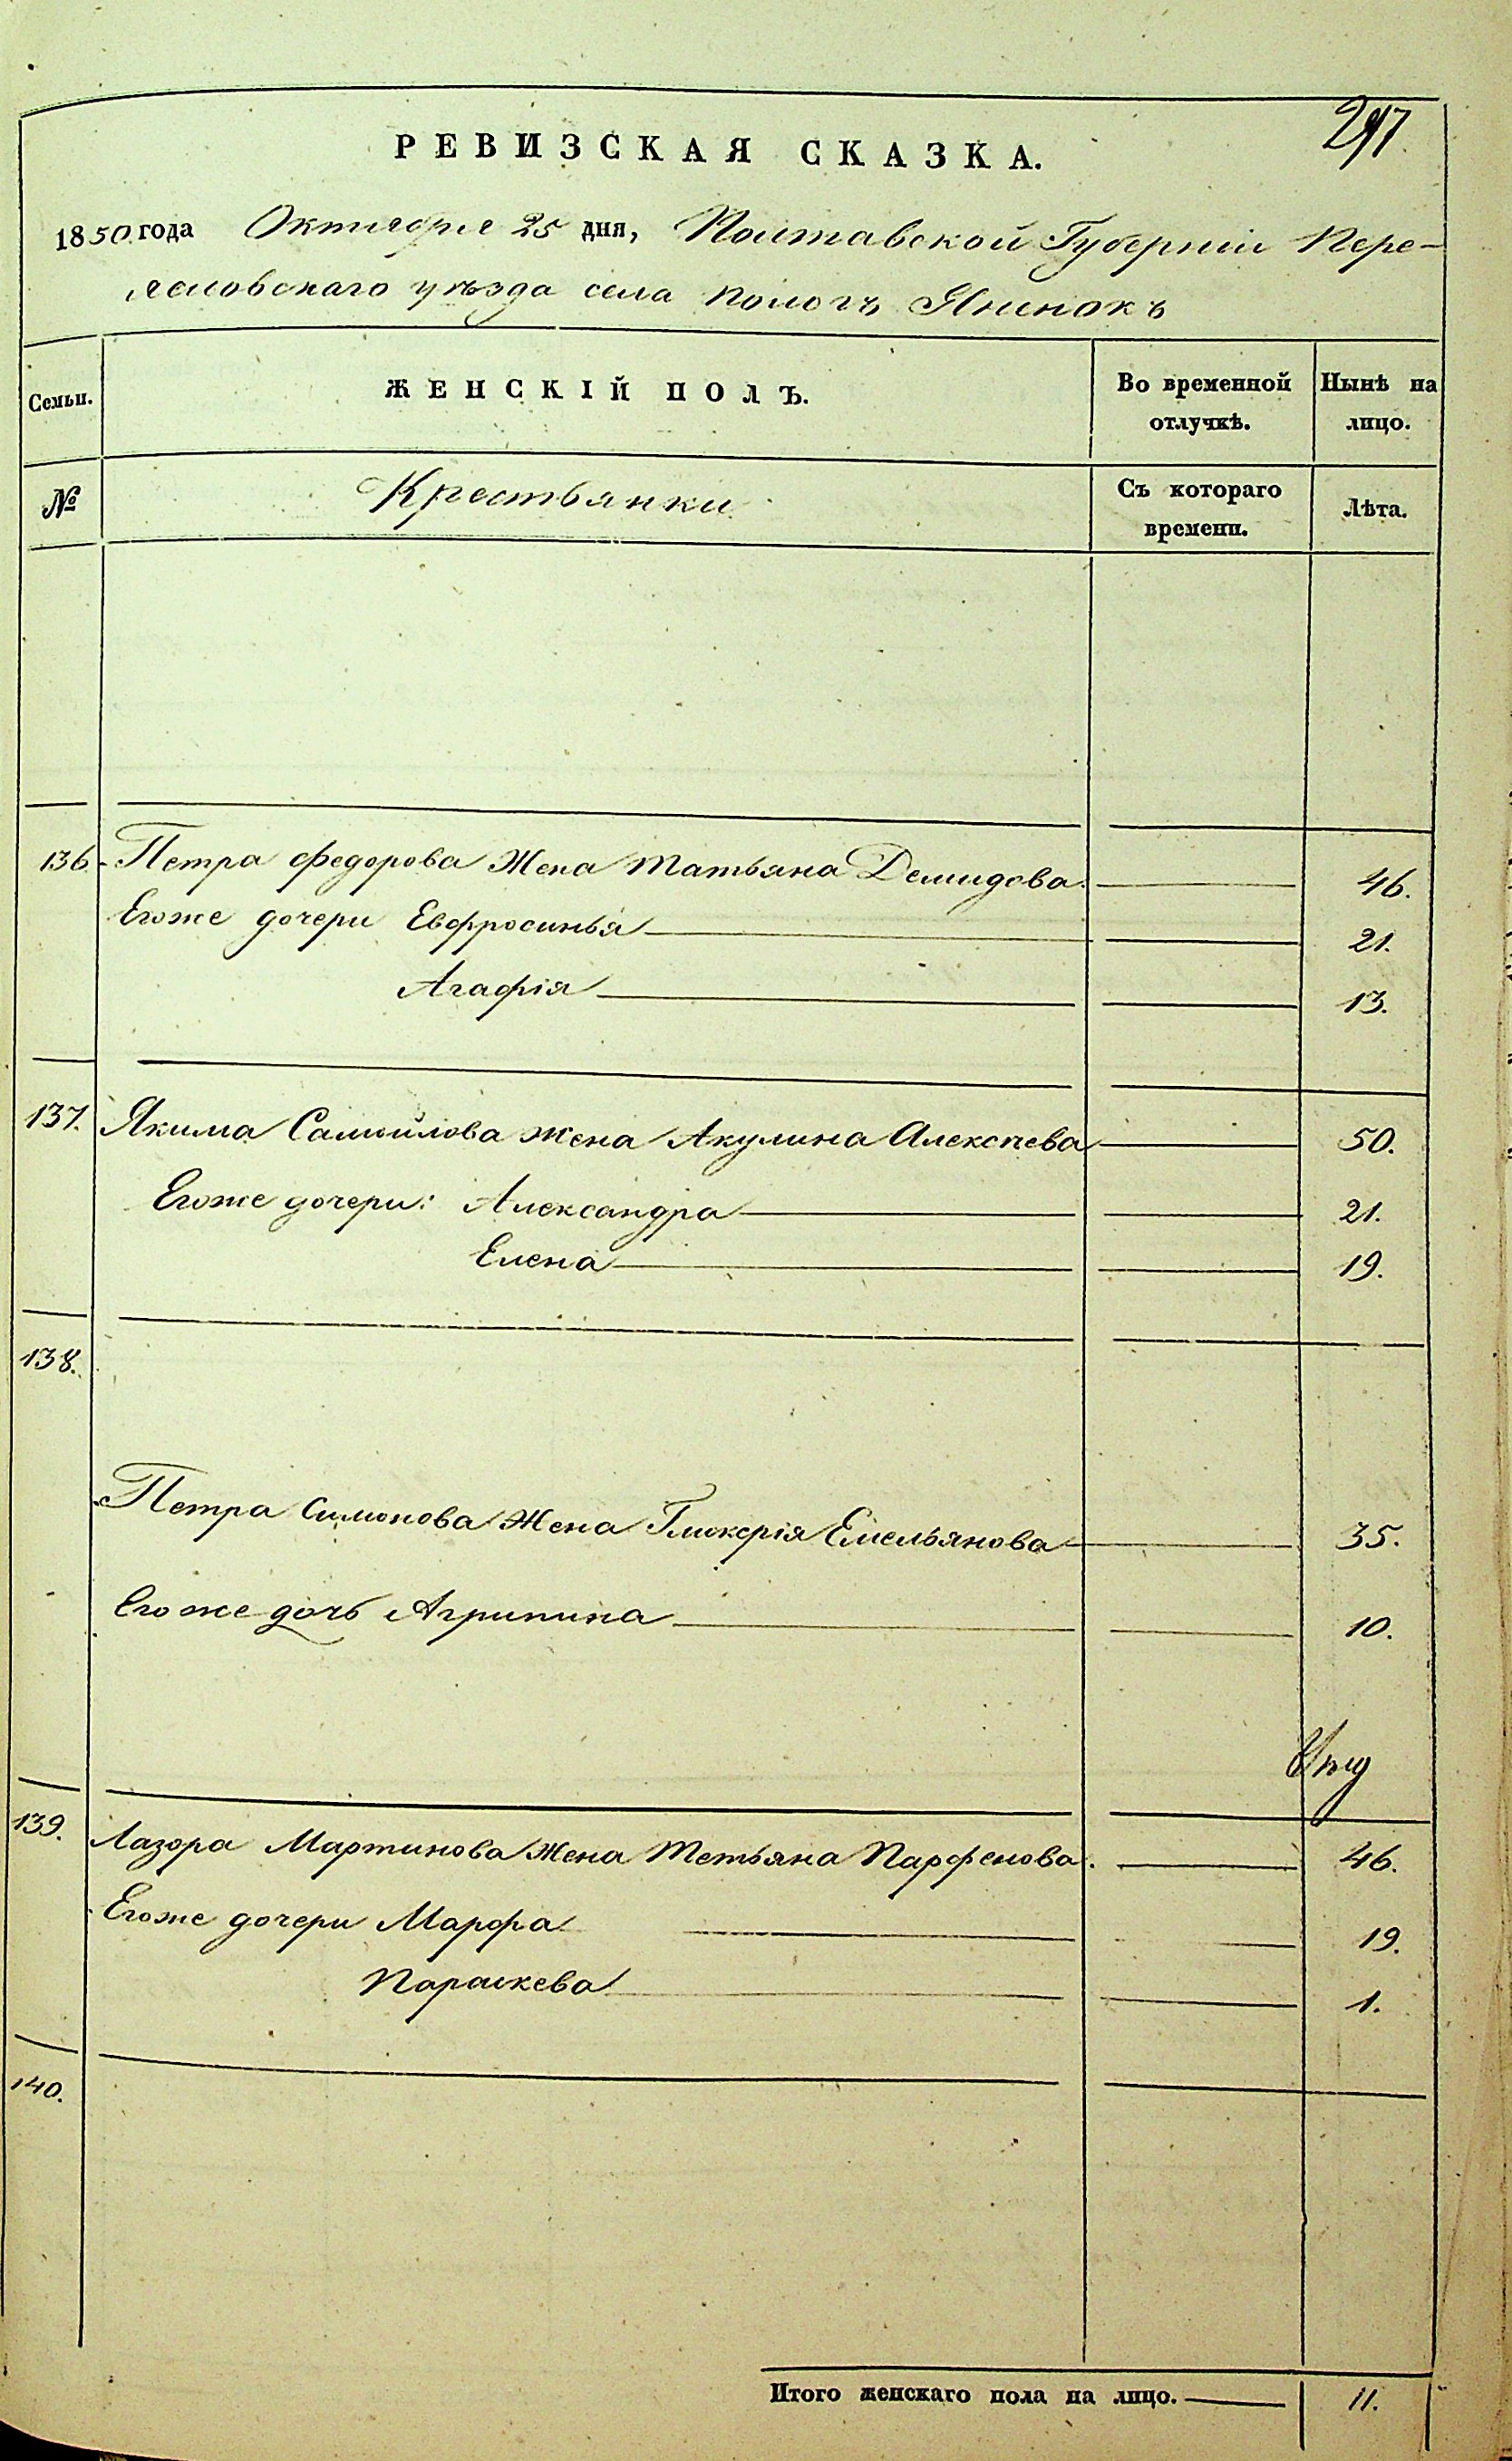 297
РЕВИЗСКАЯ СКАЗКА.
1850 года Октября 25 дня, Полтавской Губерніи Пере-
яславскаго уѣзда села Пологъ Яненокъ
Семьи. ЖЕНСКІЙ ПОЛЪ. Во временной отлучкѣ. Нынѣ на лицо.
№ Крестьянки Съ котораго времени. Лѣта.
136. Петра Федорова Жена Татьяна Демидова. 46.
Егоже дочери Евфросинья 21.
Агафія 13.
137. Якима Самойлова жена Акулина Алексѣева 50.
Егоже дочери: Александра 21.
Елена 19.
138.
Петра Симонова Жена Гликерія Емельянова 35.
Егоже дочь Агрипина 10.
139. Лазора Мартинова Жена Тетьяна Парфенова. 46.
Егоже дочери Марфа 19.
Параскева 1.
140.
Итого женскаго пола на лицо. 11.